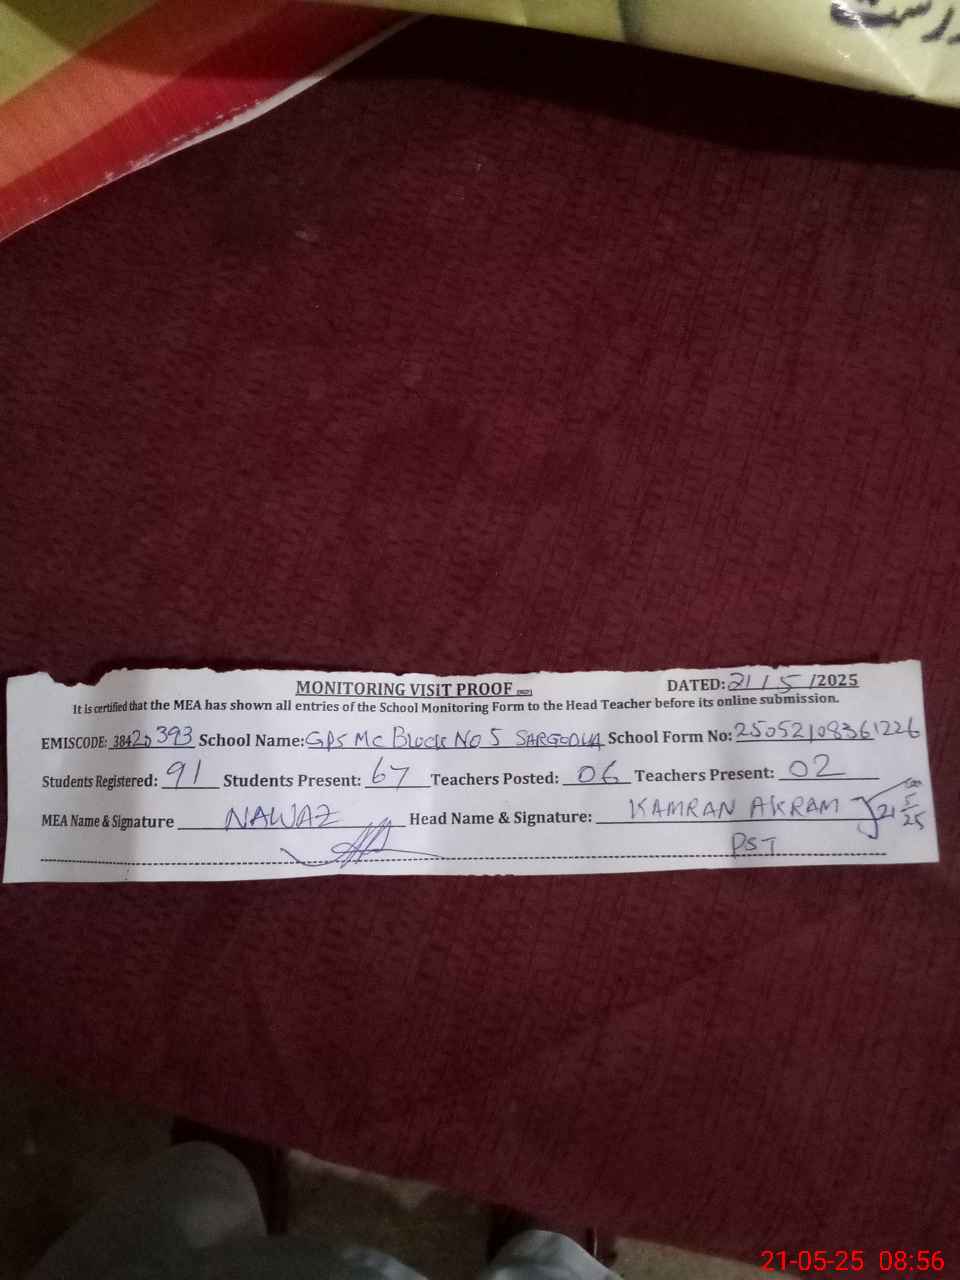 درست
MONITORING VISIT PROOF
DATED: 21/5/2025
It is certified that the MEA has shown all entries of the School Monitoring Form to the Head Teacher before its online submission.
EMISCODE: 38420393 School Name: GPS MC Block No 5 SARGODHA School Form No: 25052108361226
Students Registered: 91 Students Present: 67 Teachers Posted: 06 Teachers Present: 02
MEA Name & Signature NAWAZ Head Name & Signature: KAMRAN AKRAM 21/5/25
PST
21-05-25 08:56